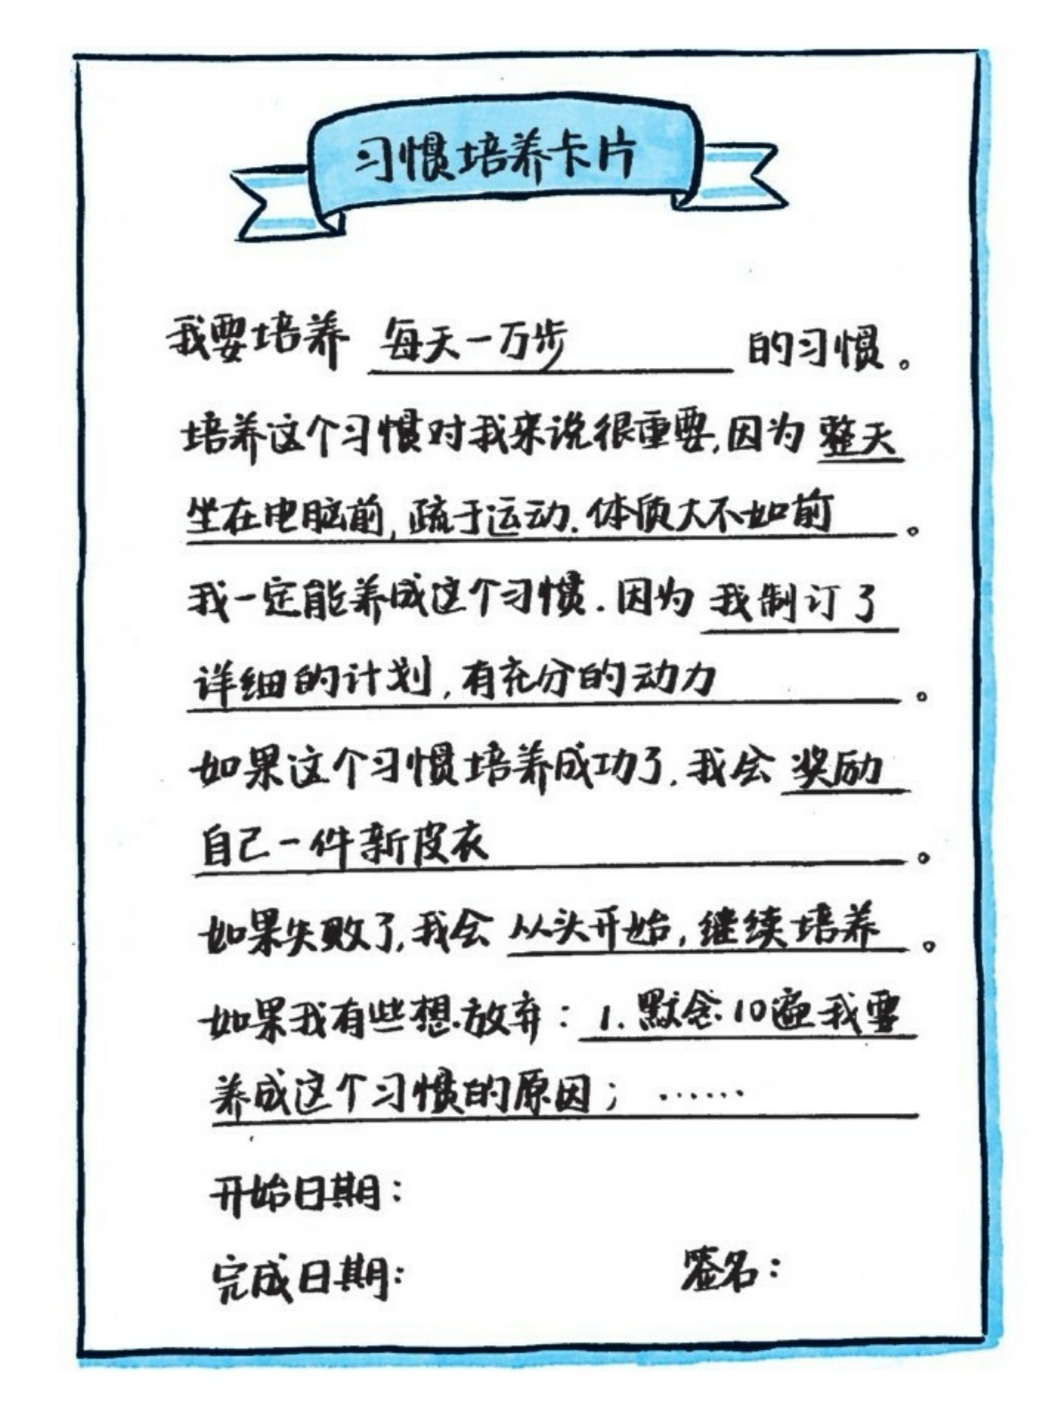 习惯培养卡片
我要培养 每天一万步 的习惯。
培养这个习惯对我来说很重要,因为 整天
坐在电脑前,疏于运动.体质大不如前。
我一定能养成这个习惯.因为 我制订了
详细的计划,有充分的动力。
如果这个习惯培养成功了.我会 奖励
自己一件新皮衣。
如果失败了,我会 从头开始,继续培养。
如果我有些想放弃: 1.默念10遍我要
养成这个习惯的原因; ······
开始日期:
完成日期: 签名: